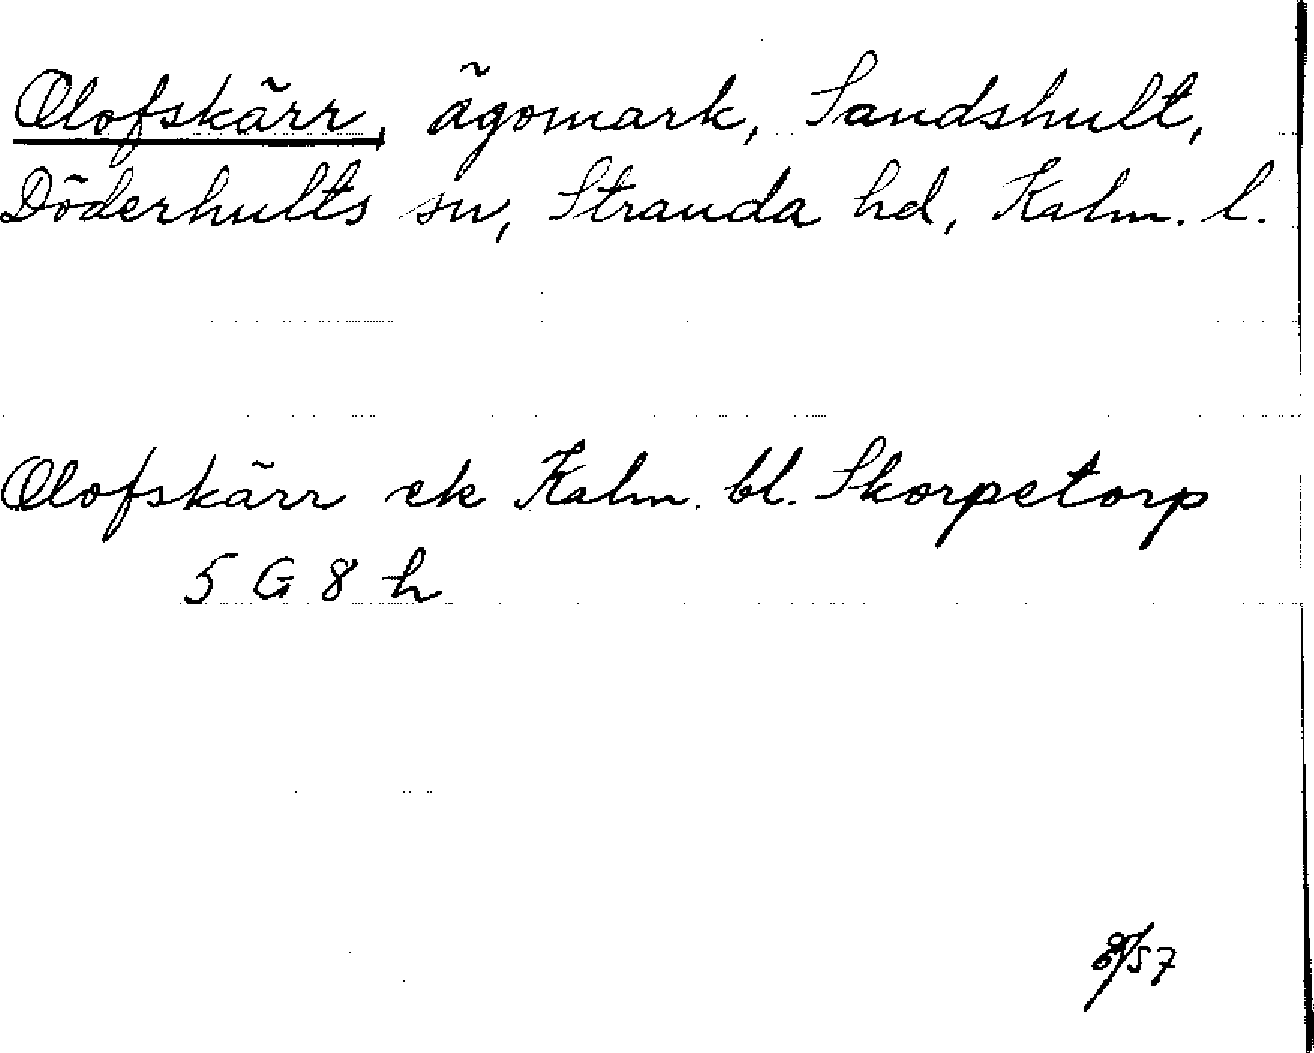 Olofskärr, ägomark, Sandshult,
Döderhults sn, Stranda hd, Kalm. l.
Olofskärr ek Kalm. bl. Skorpetorp
5 G 8 h